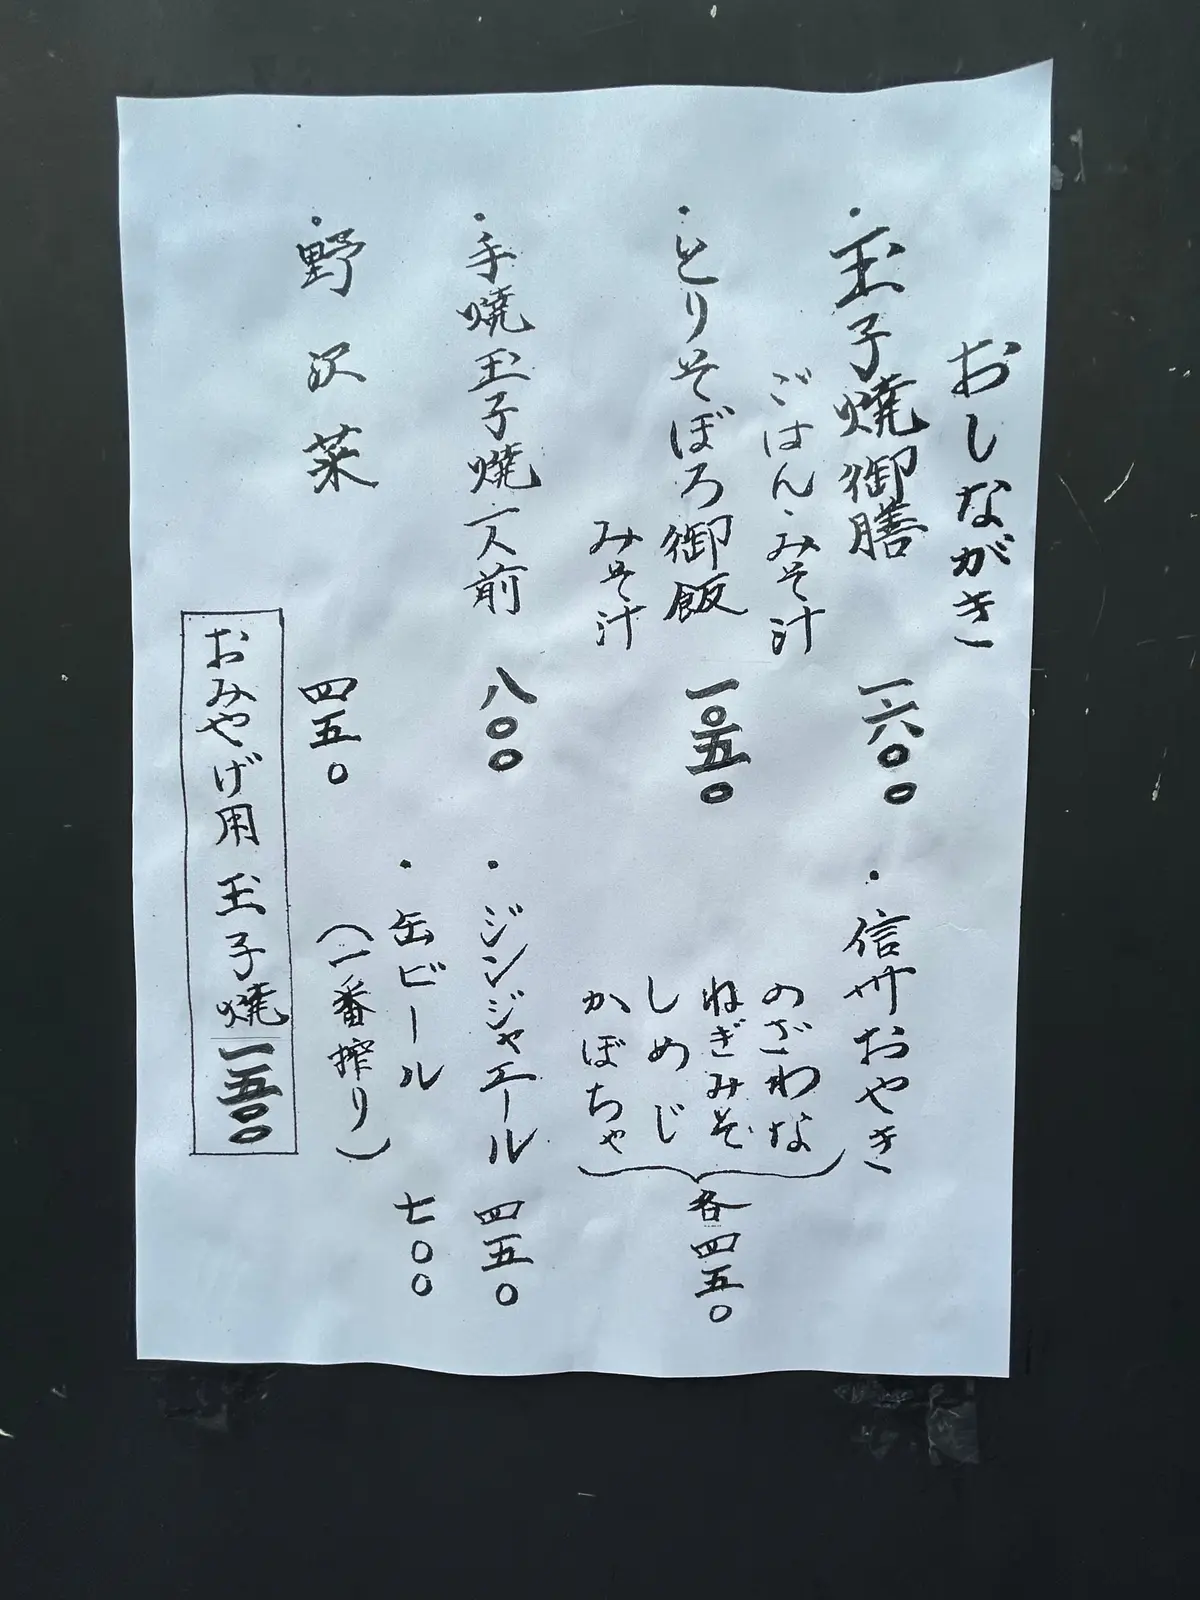 おしながき
・玉子焼御膳 一六〇〇
ごはん・みそ汁
・とりそぼろ御飯 一〇五〇
みそ汁
・手焼玉子焼一人前 八〇〇
・野沢菜 四五〇
・信州おやき
のざわな
ねぎみそ
しめじ
かぼちゃ
各四五〇
・ジンジャエール 四五〇
・缶ビール 七〇〇
(一番搾り)
おみやげ用玉子焼 一五〇〇